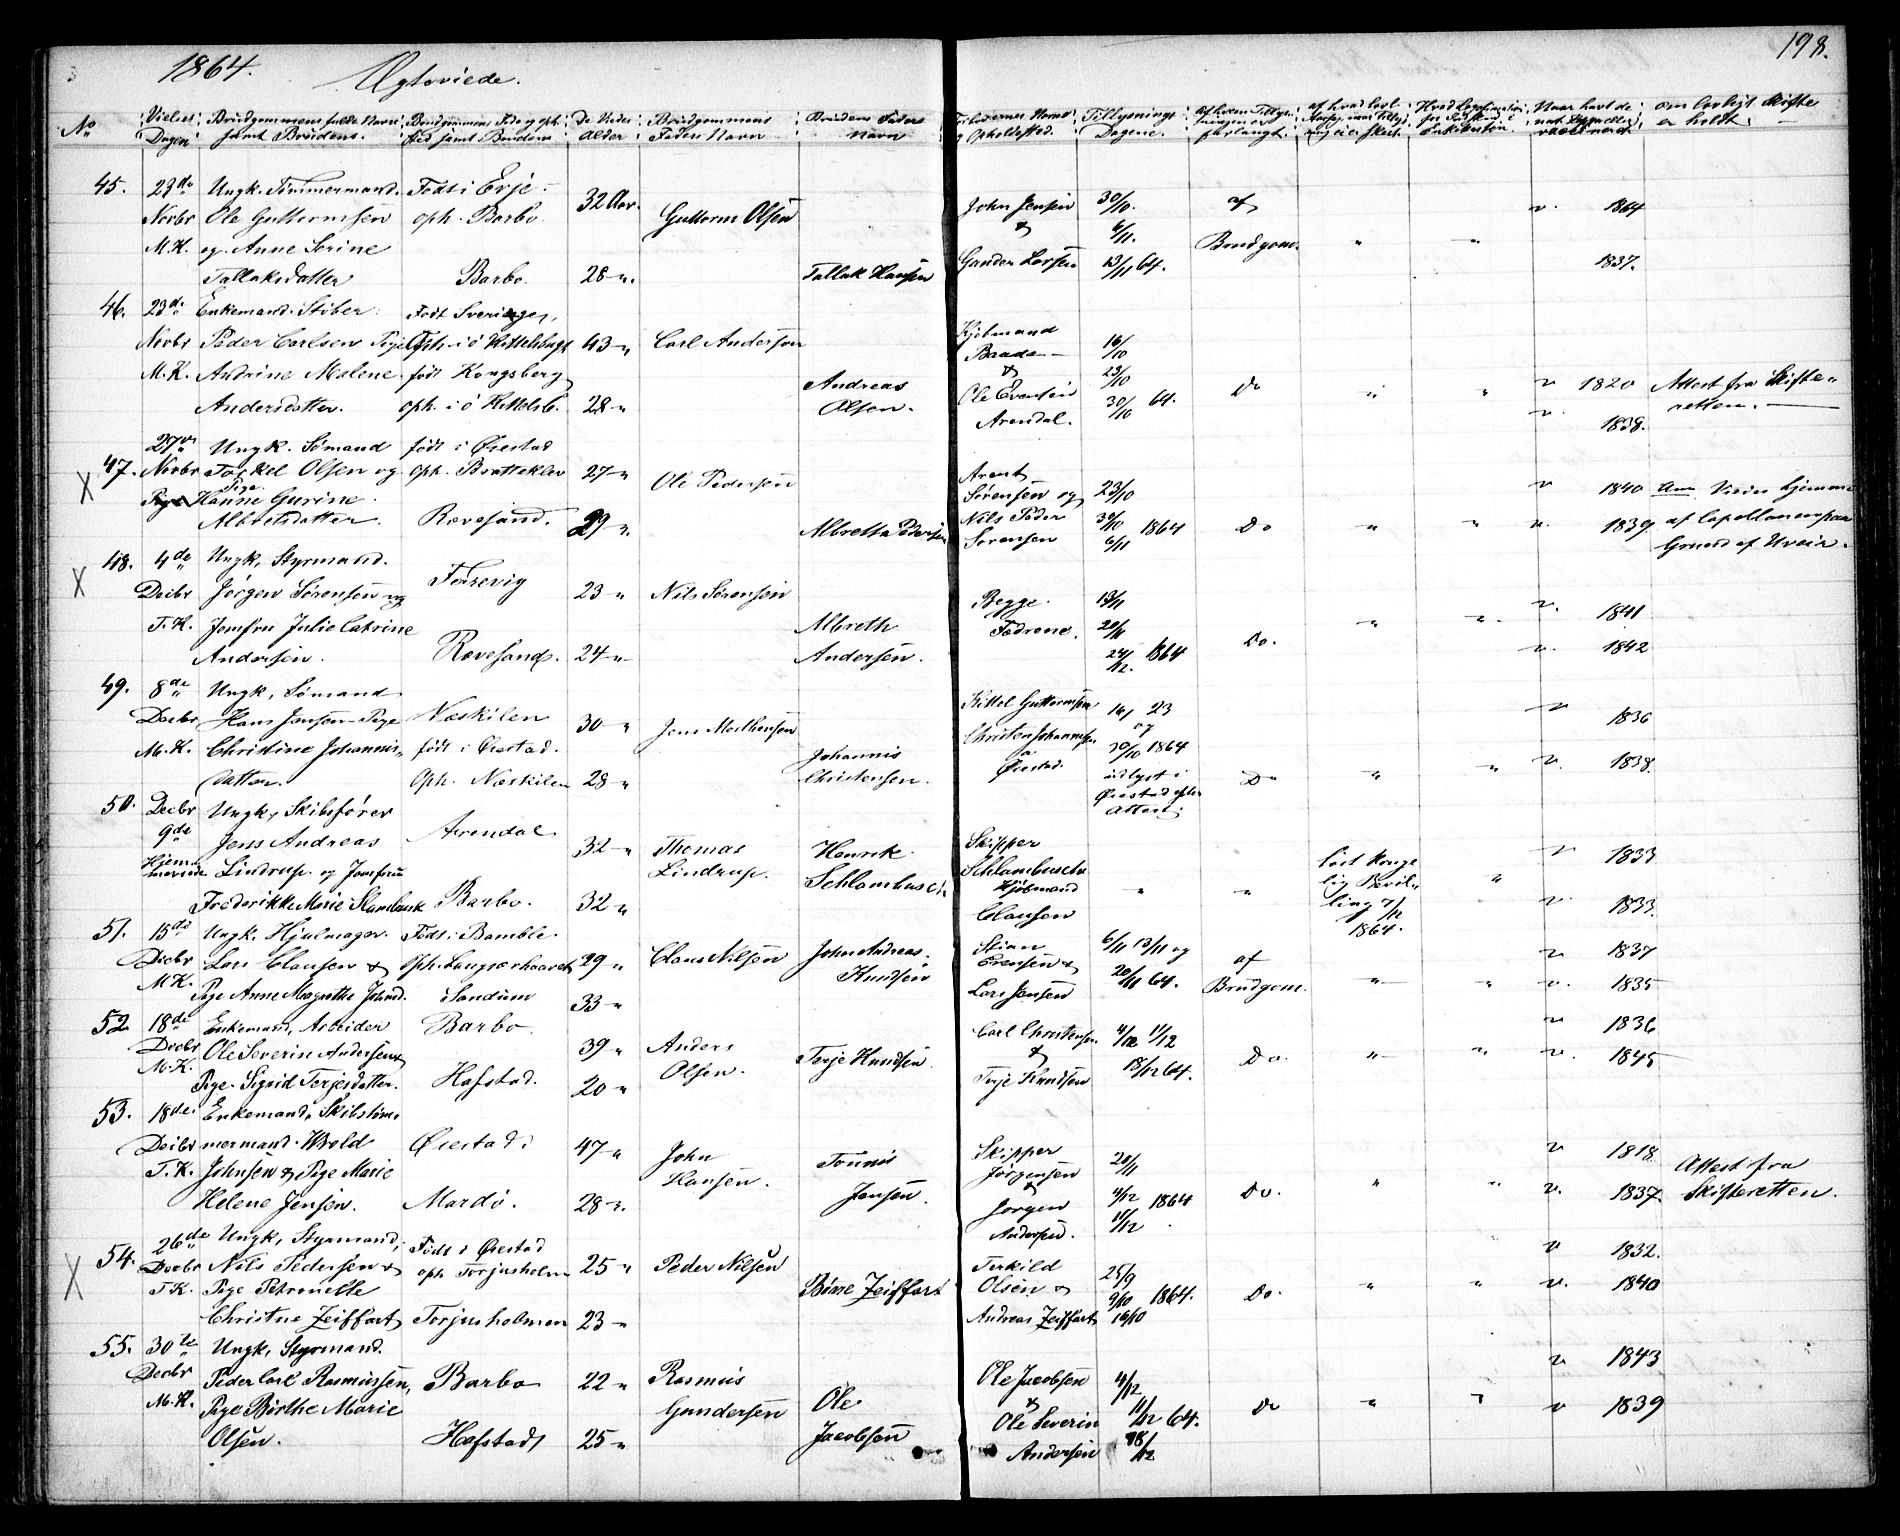 1864. Ægteviede. 198.
No
Vielses Dagen
Brudgommens fulde Navn samt Brudens.
De Viedes Alder
Brudgommens Faders Navn
Brudens Faders Navn
Forlovernes Navne og Opholdssted.
Tillysnings Dagene.
om lovligt Skifte er holdt.
45. 23de Ungk. Tømmermand. Født i Evje
Novbr Ole Guttormsen oph. Barbo 32 Aar. Guttorm Olsen John Jensen 30/10. af " 1864
M.K. og Anne Serine & 6/11. Brudgom. " "
Tallaksdatter Barbo. 28 " Tallak Hansen Gunder Larsen 13/11 64. 1837.
46. 23de Enkemand. Født Sverige,
Novbr Peder Carlsen Pige 43 " Carl Andersen Kjøbmand 16/10
M.K. Andrine Malene født Kongsberg Andreas & 23/10 Do " " " 1820 Attest fra Skifte-
Andersdatter. 28 " Olsen. Ole Evensen 30/10 64. retten.
Arendal. " 1838.
27de Ungk. Sømand født i Øiestad
47. Novbr Terkel Olsen og oph. Bratteklev 27 " Ole Pedersen Arent Sørensen og 23/10 " 1840
Pige Hanne Gurine
Albretsdatter. Revesand. 29 " Nils Peder 30/10 1864 Do " " " 1839
Sørensen 6/11 Grund af Uveir.
48. 4de Ungk, Styrmand.
Decbr Jørgen Sørensen og 23 " Nils Sørensen Begge 13/11 " 1841
T.K. Jomfru Julie Catrine Albreth Fædrene. 20/11 " "
Andersen. Revesand. 24 " Andersen. 1864 Do. " 1842
49. 8de Ungk, Sømand
Decbr Hans Jensen Pige Næskilen 30 " Jens Mathesen Kittel Guttormsen 16, 23 " 1836
M.K. Christine Johannis- født i Øiestad. Johannis og 30/10 1864
datter. Oph. Næskilen 28 " Christensen. Øiestad. udlyst i Do " " " 1838.
Øiestad efter
Attest.
50. Decbr Ungk, Skibsfører
9de Jens Andreas Arendal 32 " Thomas Henrik Skipper " 1833
Hjemme Lindrup og Jomfru Lindrup. Schlambusch Schlambusch løst Konge
viede Frederikke Marie Slambusk Barbo. 32 " Kjøbmand " " lig Bevil- "
Clausen ling 7/12 " 1833.
1864.
51. 15de Ungk. Hjulmager. Født i Bamble.
Decbr Lars Clausen & 29 " Claus Nilsen John Andreas Evensen & 6/11 13/11 og af " 1837
M.K. Pige Anne Magrethe Sandum 33 " Knudsen Lars Jensen 20/11 64. Brudgom. " " " 1835
52 18de Enkemand, Arbeider Barbo Carl Christensen 4/12 11/12 " 1836
Decbr Ole Severin Andersen & 39 " Anders Terje Knudsen & Do. " " " 1845
M.K. Pige Sigrid Terjesdatter. Hafstad. 20 " Olsen. Terje Knudsen 18/12 64.
53. 18de. Enkemand, Skibstøm-
Decbr mermand Øiestad. 47 " John Skipper 20/11 " 1818 Attest fra
T.K. Johnsen & Pige Marie Hansen. Tønnis Jørgensen & 4/12 1864 Do. " "
Helene Jensen. Mardø. 28 " Jensen. Jørgen 11/12 " 1837. Skifteretten.
Andersen.
54. 26de Ungk, Styrmand, Født i Øiestad " 1832.
Decbr Nils Pedersen & oph Torjusholm 25 " Peder Nilsen Terkild 25/9
T.K. Pige Petronelle Zeiffart Olsen & 9/10 1864. Do. " " " 1840
Christine Zeiffart Torjusholmen 23 " Andreas Zeiffart 16/10
55. 30te Ungk, Styrmand.
Decbr Peder Carl Rasmussen, Barbo 22 " Rasmus Ole Jacobsen 4/12 " 1843
M.K. Pige Birthe Marie Gundersen Ole & 11/12 64. Do " " " 1839
Olsen. Hafstad 25 " Jacobsen Ole Severin 18/12
Andersen